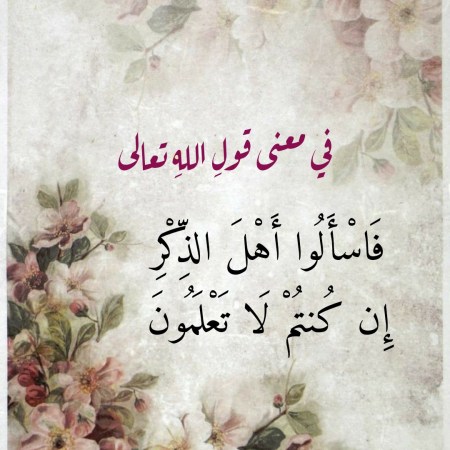 في معنى قولِ اللهِ تعالى
فَاسْأَلُوا أَهْلَ الذِّكْرِ
إِن كُنتُمْ لَا تَعْلَمُونَ